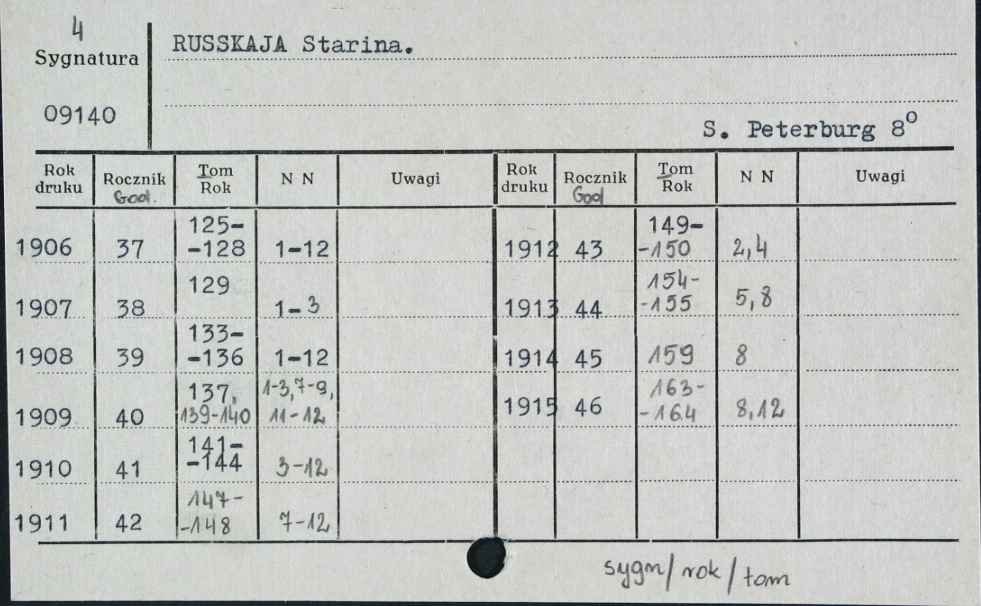 4
Sygnatura
RUSSKAJA Starina.
09140
S. Peterburg 8°
Rok druku Rocznik God. Tom Rok N N Uwagi Rok druku Rocznik God Tom Rok N N Uwagi
1906 37 125--128 1-12 1912 43 149--150 2,4
1907 38 129 1-3 1913 44 154--155 5,8
1908 39 133--136 1-12 1914 45 159 8
1909 40 137, 139-140 1-3,7-9, 11-12 1915 46 163--164 8,12
1910 41 141--144 3-12
1911 42 147--148 7-12
sygn/rok/tom